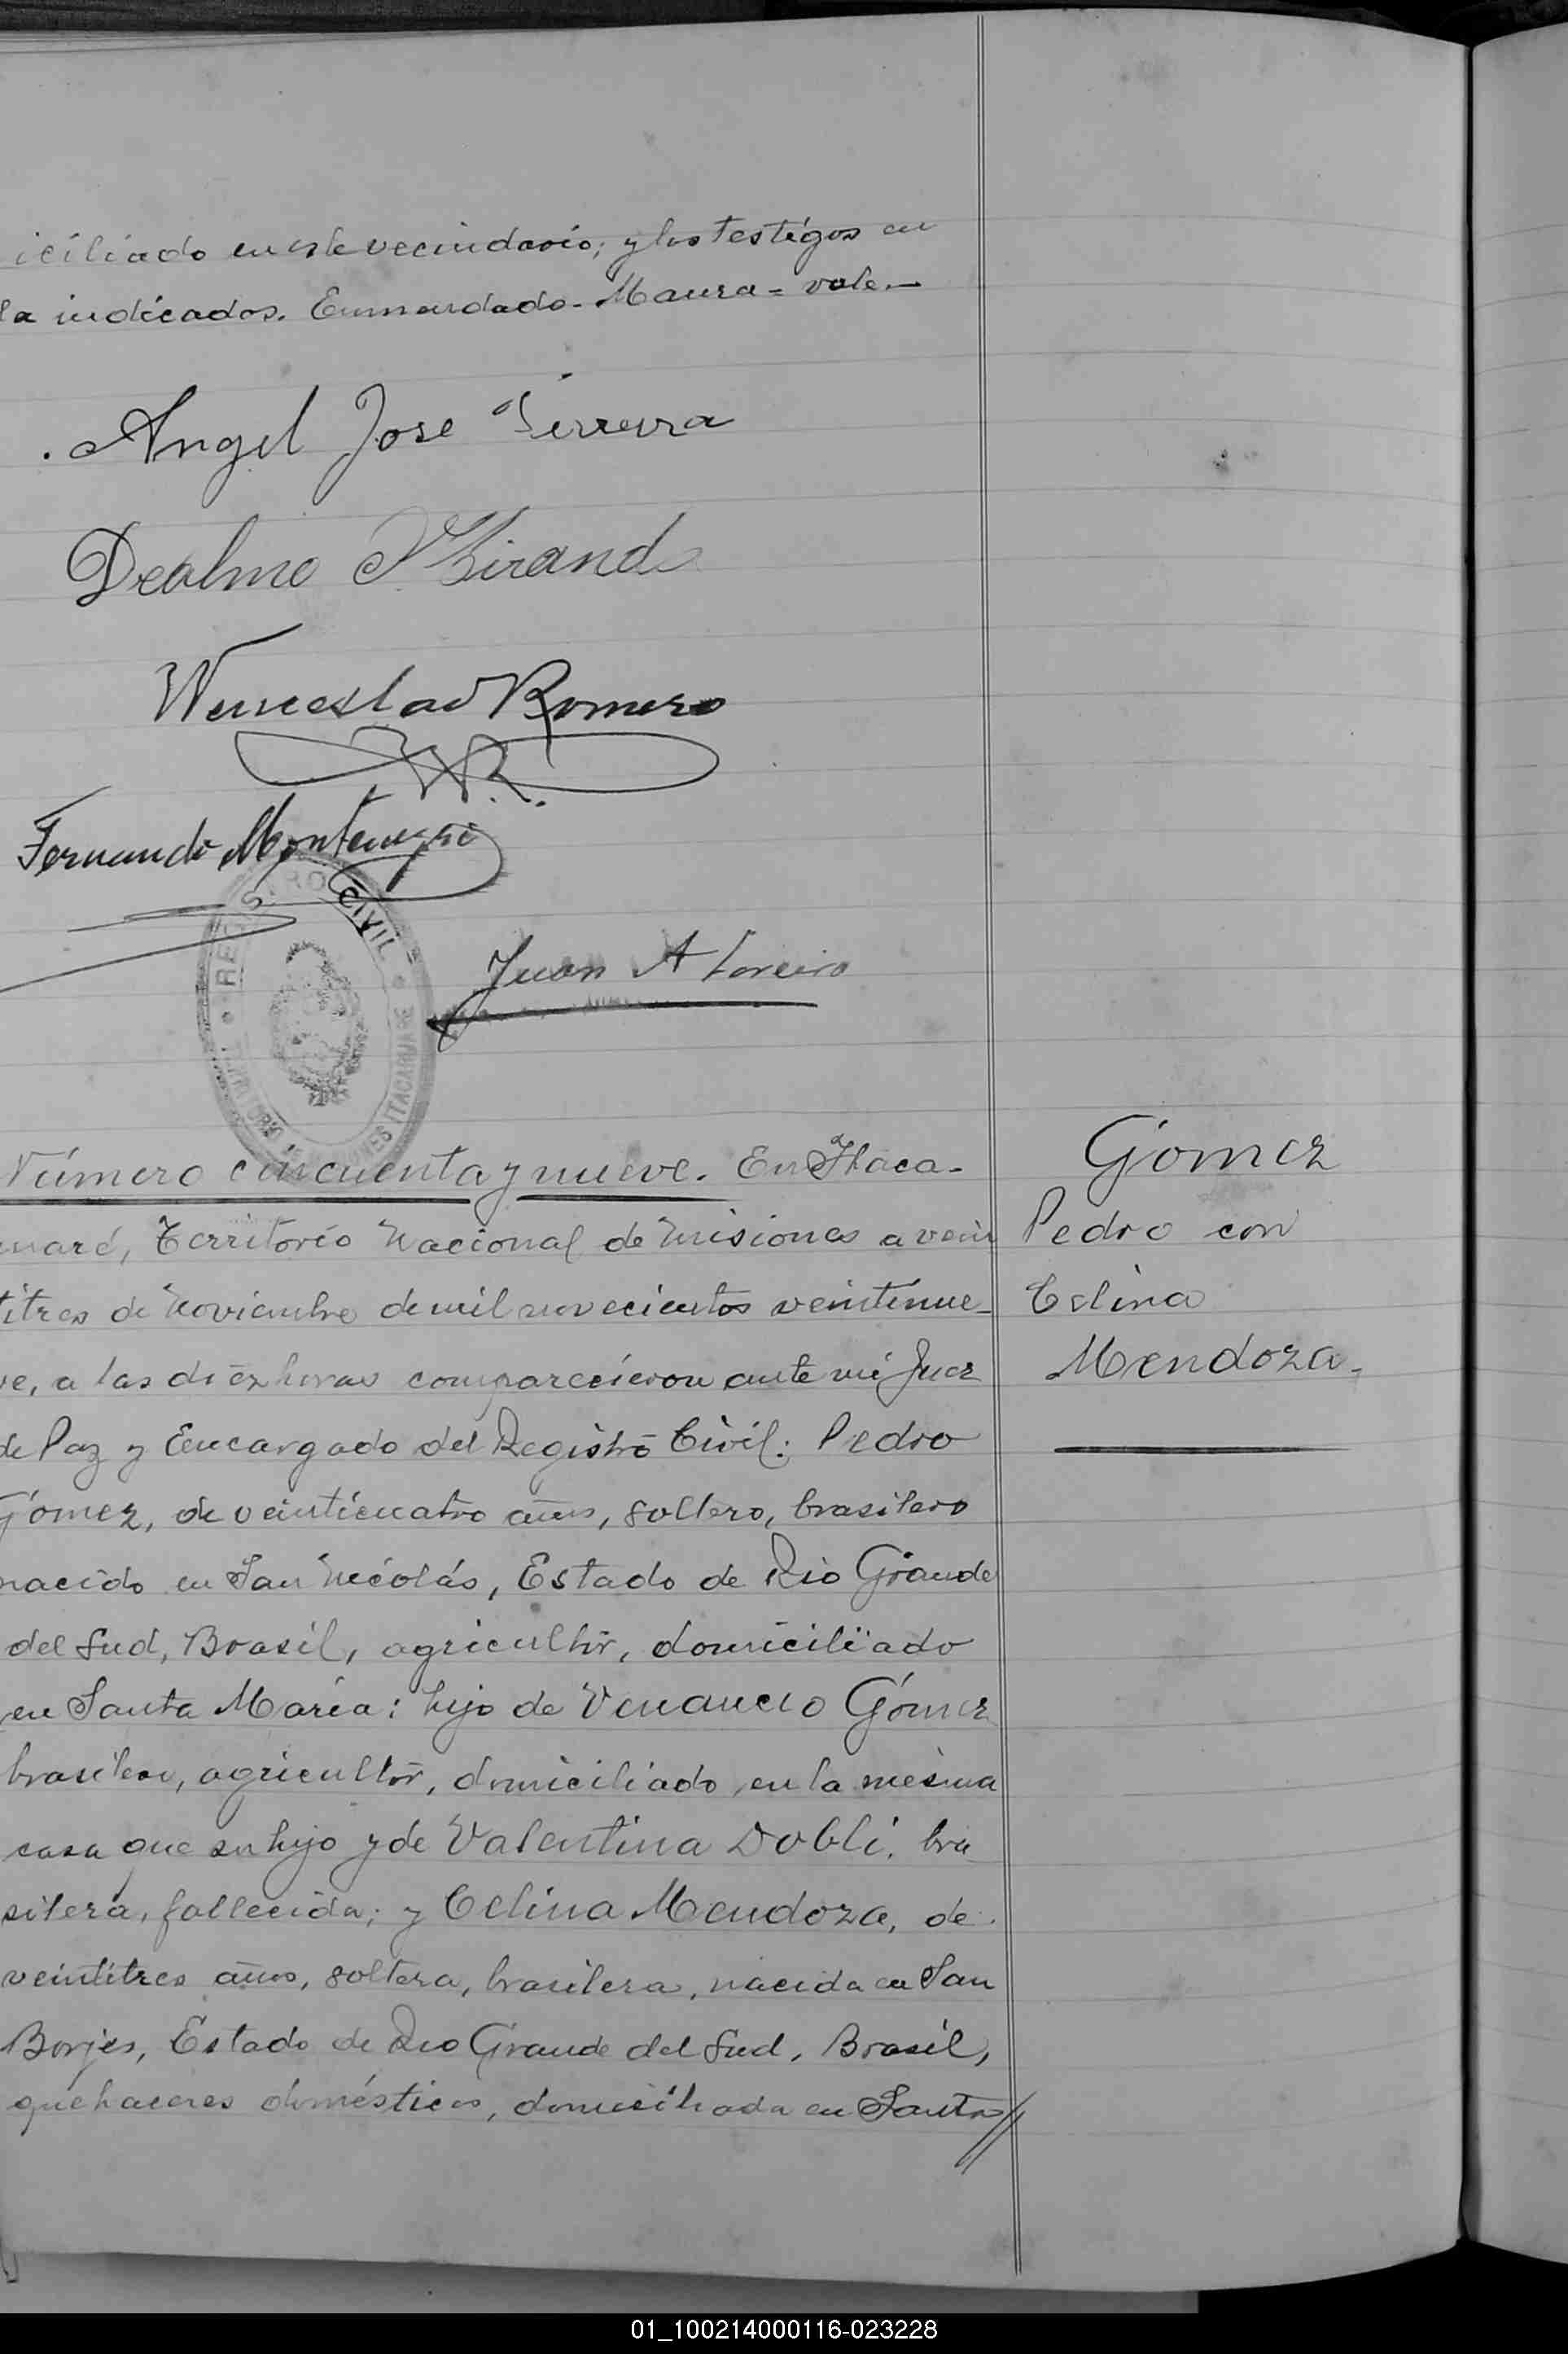 iciliado en este vecindario; y los testigos en
la indicados. Enmendado - Maura = vale.-
Angel Jose Ferreira
Dealmo Mirand
Wenceslao Romero
W R.
Fernando Montenegro
REGISTRO CIVIL
Juan A Loreiro
TERRITORIO MISIONES ITACARUARE
Número cincuenta y nueve. En Itaca-
Gomez
ruaré, Territorio Nacional de Misiones a vein
Pedro con
titres de Noviembre de mil novecientos veintinue-
Celina
ve, a las diez horas comparecieron ante mi Juez
Mendoza.
de Paz y Encargado del Registro Civil: Pedro
Gómez, de veinticuatro años, soltero, brasilero
nacido en San Nicolás, Estado de Rio Grande
del Sud, Brasil, agricultor, domiciliado
en Santa María: hijo de Venancio Gómez
brasilero, agricultor, domiciliado en la misma
casa que su hijo y de Valentina Dobli, bra
silera, fallecida; y Celina Mendoza, de
veintitres años, soltera, brasilera, nacida en San
Borjes, Estado de Rio Grande del Sud, Brasil,
quehaceres domésticos, domiciliada en Santa//
01_100214000116-023228